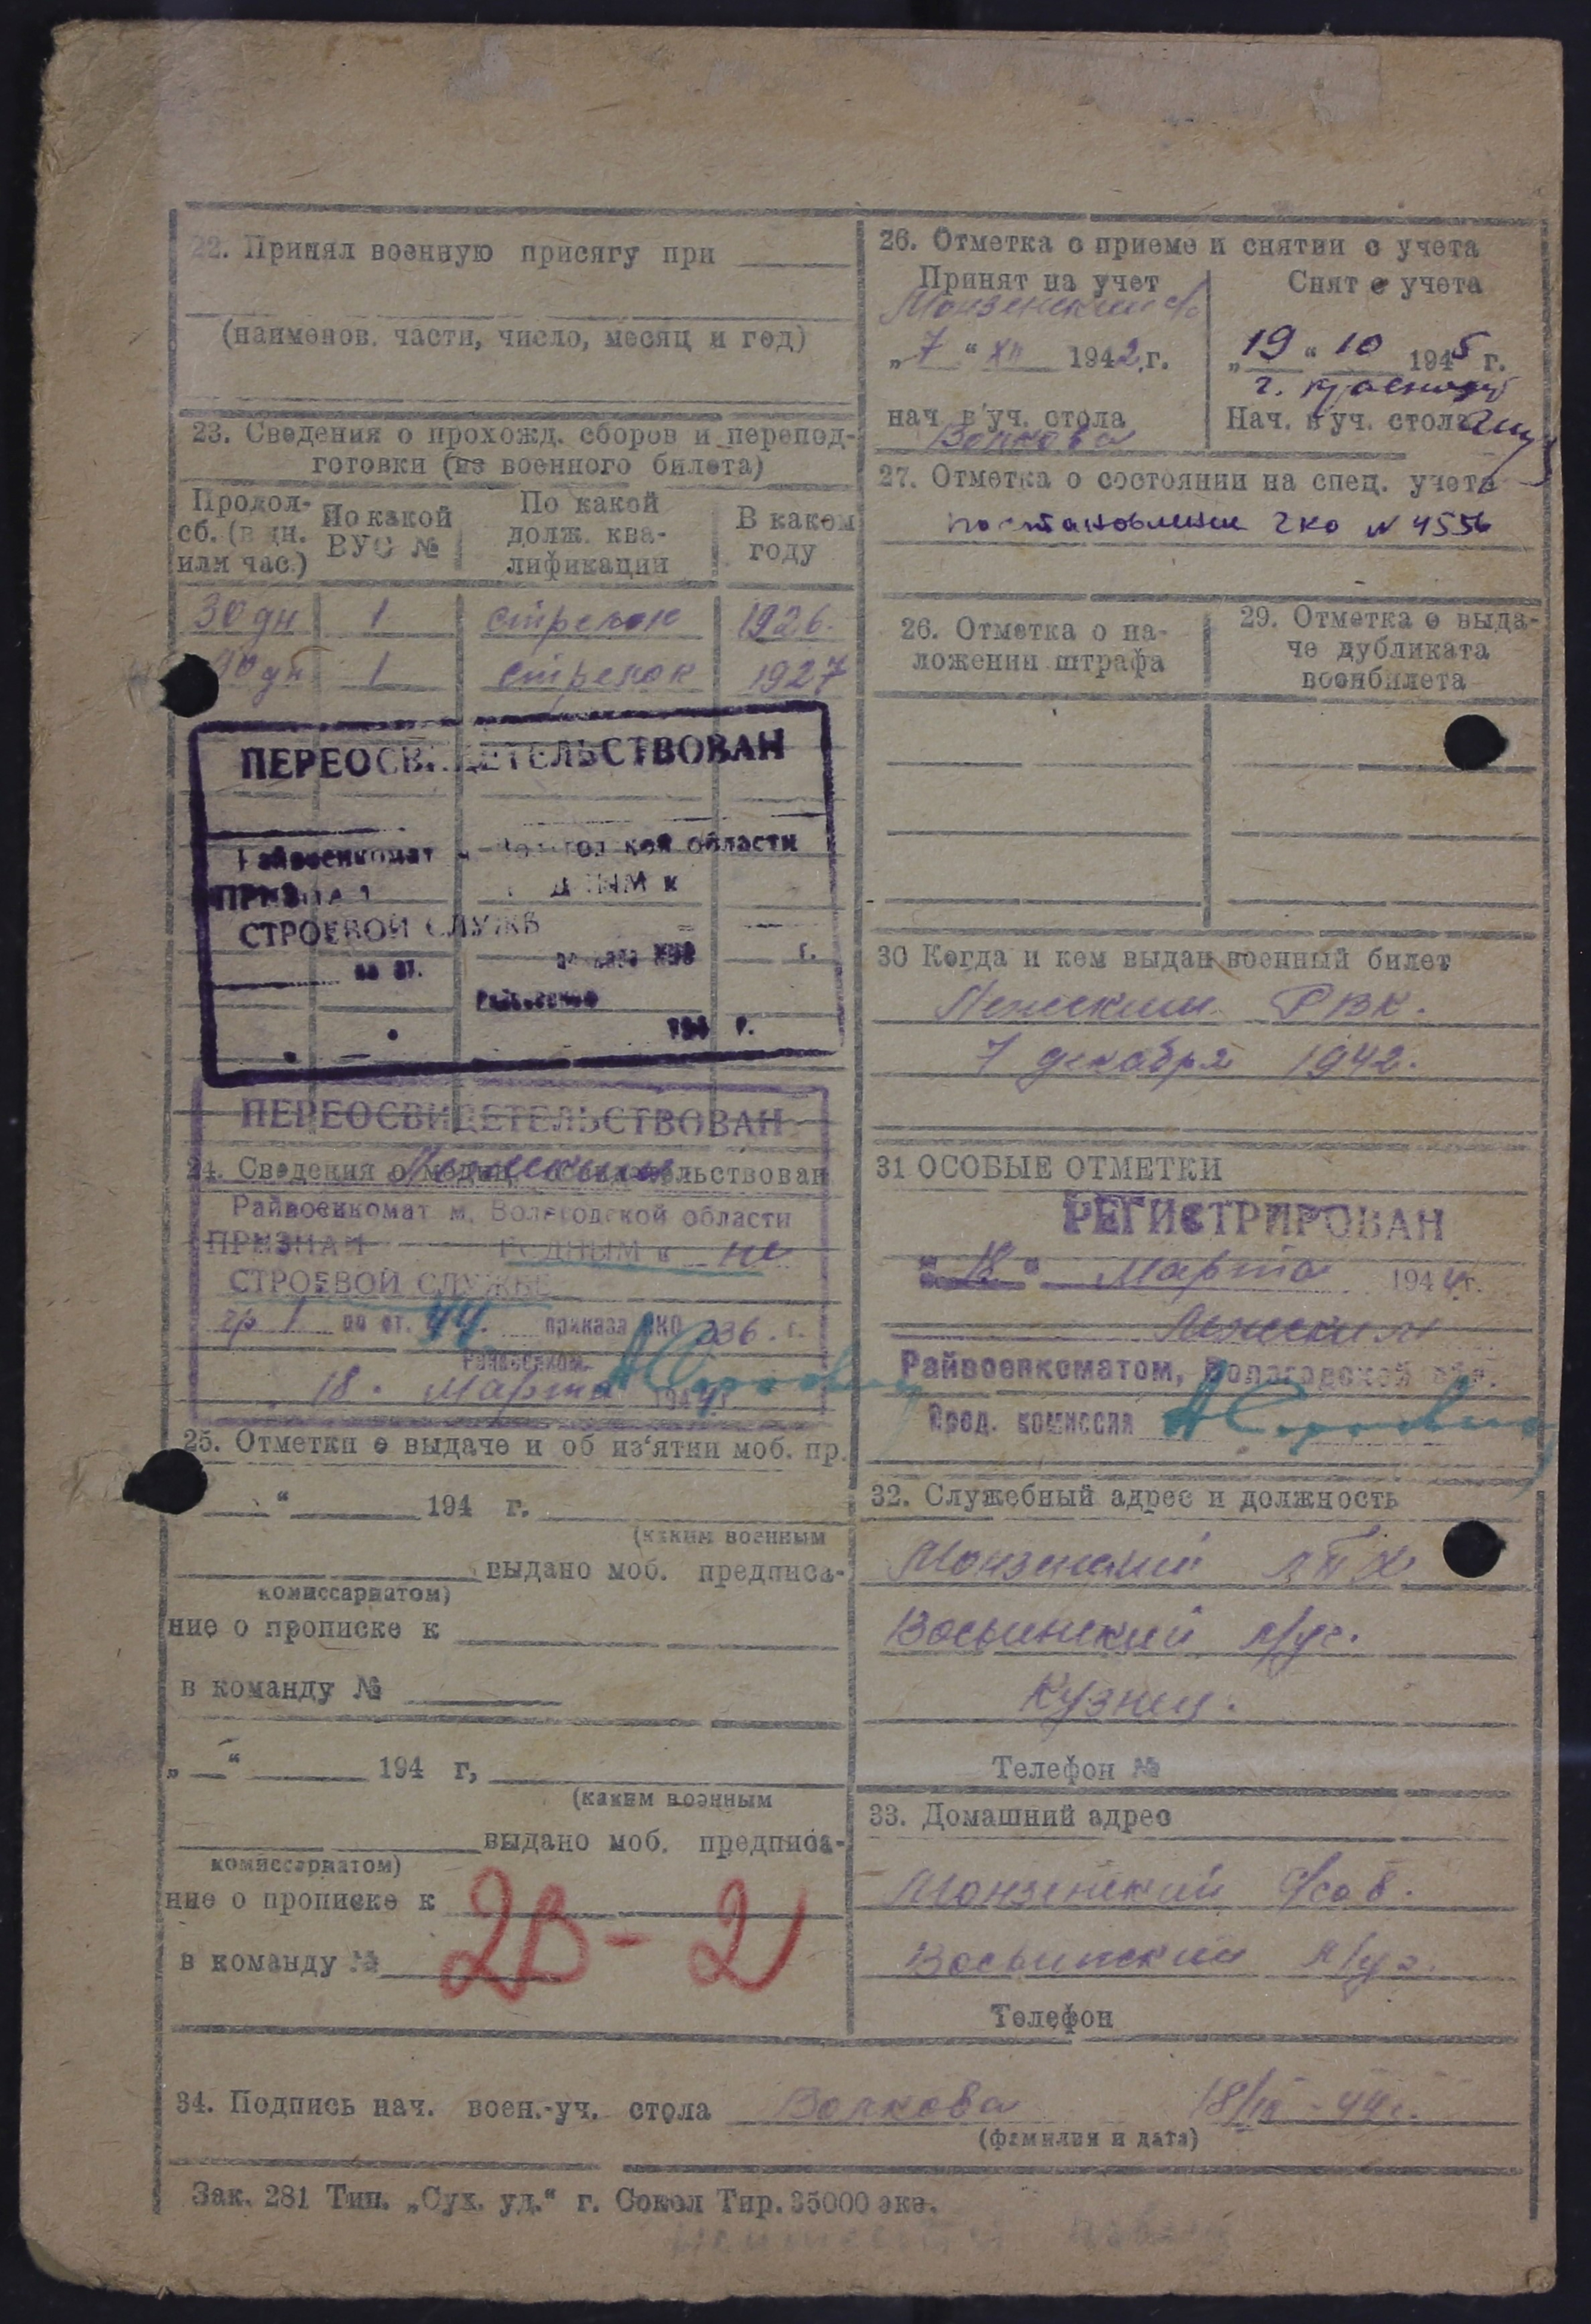 22. Принял военную присягу при
(наименов. части, число, месяц и год)
23. Сведения о прохожд. сборов и перепод-
готовки (из военного билета)
Продол-
сб. (в дн.
или час.)
По какой
ВУС №
По какой
долж. ква-
лификации
В каком
году
30 дн 1 стрелок 1926.
90 дн 1 стрелок 1927
ПЕРЕОСВИДЕТЕЛЬСТВОВАН
Райвоенкомат м. Вологодской области
ПРИЗНАН ГОДНЫМ к
СТРОЕВОЙ СЛУЖБ
по ст. приказа НКО г.
Райвоенком
194 г.
ПЕРЕОСВИДЕТЕЛЬСТВОВАН
24. Сведения о медиц. освидетельствован
Райвоенкомат м. Вологодской области
ПРИЗНАН ГОДНЫМ к не
СТРОЕВОЙ СЛУЖБЕ
гр 1 по ст. 44. приказа НКО 336. г.
Райвоенком.
18. Марта 1944 г.
25. Отметки о выдаче и об из‘ятии моб. пр.
“ 194 г.
(каким военным
выдано моб. предписа-
комиссариатом)
ние о прописке к
в команду №
„ “ 194 г,
(каким военным
выдано моб. предписа-
комиссариатом)
ние о прописке к
2В-2
в команду №
26. Отметка о приеме и снятии с учета
Принят на учет
Монзенский с/с
„7“ XII 1942 г.
нач. в'уч. стола
Волкова
Снят с учета
„19“ 10 1945 г.
Нач. в'уч. стола
27. Отметка о состоянии на спец. учете
постановлении ГКО № 4556
26. Отметка о на-
ложении штрафа
29. Отметка о выда-
че дубликата
воонбилета
30 Когда и кем выдан военный билет
РВК.
7 декабря 1942.
31 ОСОБЫЕ ОТМЕТКИ
РЕГИСТРИРОВАН
„18“ Марта 1944 г.
Райвоенкоматом, Вологодской обл.
Пред. комиссия
32. Служебный адрес и должность
Монзенский ЛТХ
л/уч.
Кузнец.
Телефон №
33. Домашний адрес
Монзенский с/сов.
л/уч.
Телефон
34. Подпись нач. воен.-уч. стола Волкова
(фамилия и дата)
Зак. 281 Тип. „Сух. уд.“ г. Сокол Тир. 35000 экз.